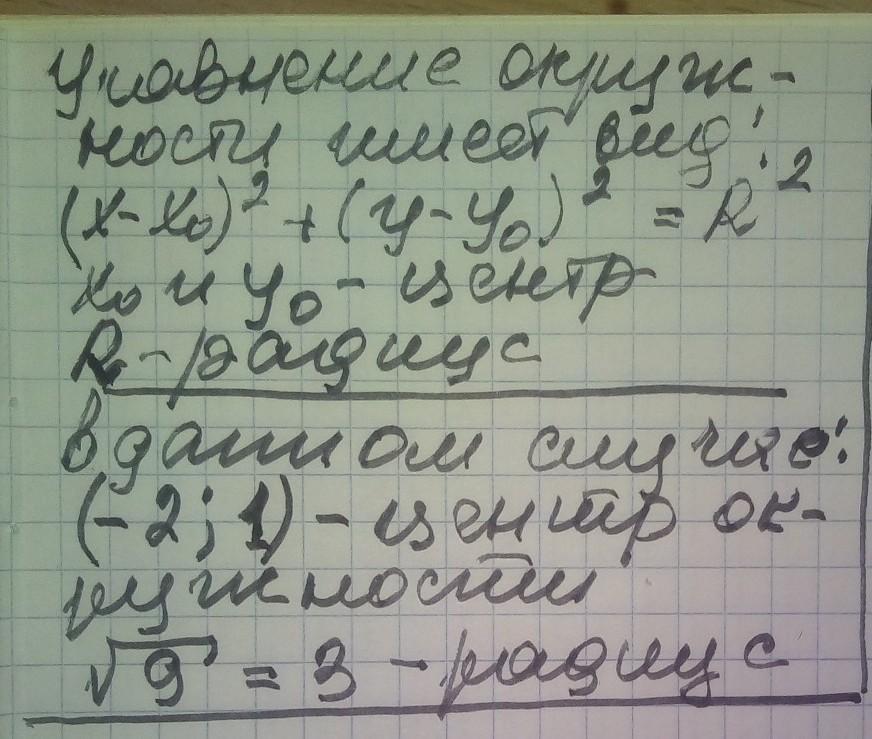 Уравнение окруж-
ности имеет вид:
(x-x₀)² + (y-y₀)² = R²
x₀ и y₀ - центр
R - радиус
в данном случае:
(-2; 1) - центр ок-
ружности
√9 = 3 - радиус